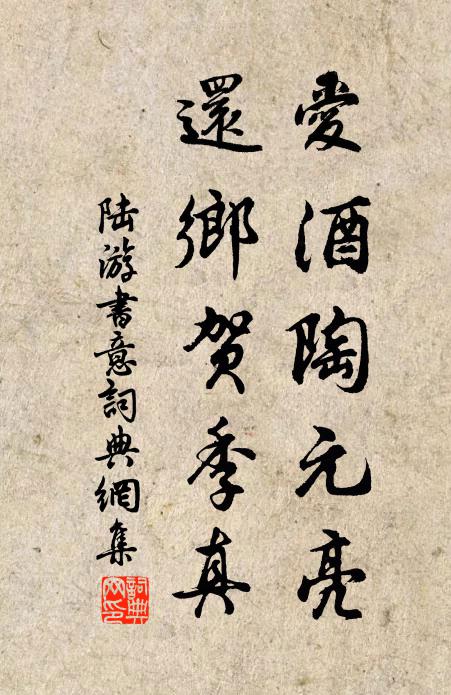 愛酒陶元亮
還鄉贺季真
陆游書意詞典網集
詞典
网印